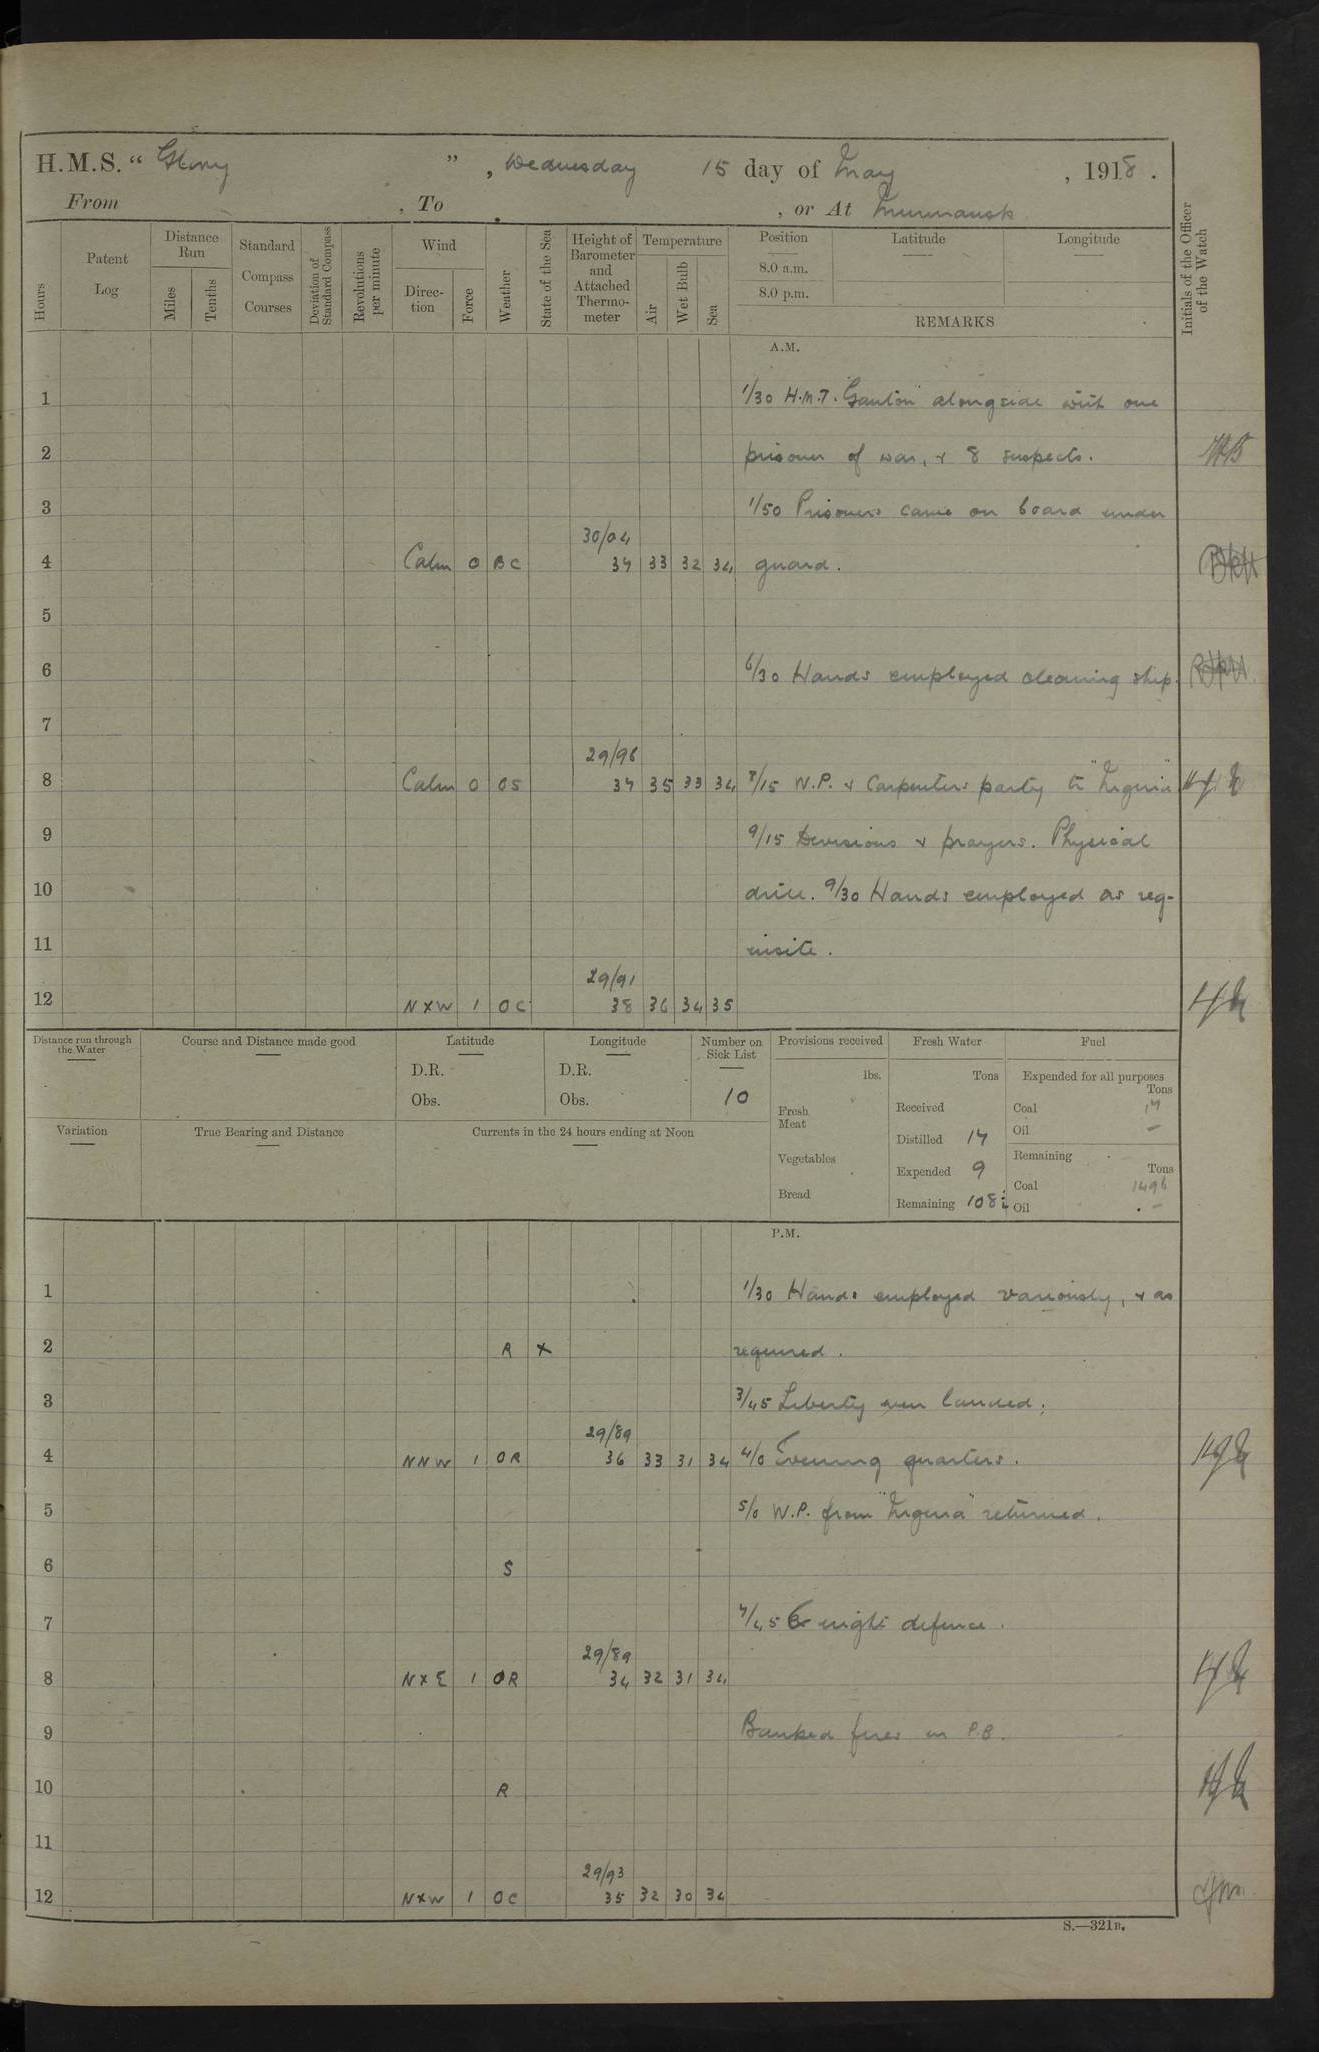 H.M.S. “ Glory ” , Wednesday 15 day of May , 1918 .
From , To , or At Murmansk
Hours
Patent Log
Distance Run
Miles
Tenths
Standard Compass Courses
Deviation of Standard Compass
Revolutions per minute
Wind
Direction
Force
Weather
State of the Sea
Height of Barometer and Attached Thermometer
Temperature
Air
Wet Bulb
Sea
Position
8.0 a.m.
8.0 p.m.
Latitude
Longitude
REMARKS
Initials of the Officer of the Watch
A.M.
1 1/30 H.M.T. "Ganton" alongside with one
2 prisoner of war, & 8 suspects.
3 1/50 Prisoners came on board under
30/04
4 Calm 0 BC 37 33 32 34 guard.
5
6 6/30 Hands employed cleaning ship.
7
29/96
8 Calm 0 OS 37 35 33 34 8/15 W.P. & Carpenters party to
9 9/15 Divisions & prayers. Physical
10 drill. 9/30 Hands employed as req-
11 uisite.
29/91
12 N x W 1 OC 38 36 34 35
Distance run through the Water
Course and Distance made good
Latitude
D.R.
Obs.
Longitude
D.R.
Obs.
Number on Sick List
10
Provisions received
lbs.
Fresh Meat
Vegetables
Bread
Fresh Water
Tons
Received
Distilled 17
Expended 9
Remaining 108
Fuel
Expended for all purposes
Tons
Coal 17
Oil –
Remaining
Tons
Coal 1496
Oil –
Variation
True Bearing and Distance
Currents in the 24 hours ending at Noon
P.M.
1 1/30 Hands employed variously, & as
2 R x required.
3 3/45 Liberty men landed.
29/89
4 NNW 1 OR 36 33 31 34 4/0 Evening quarters.
5 5/0 W.P. from returned.
6 S
7 7/45 night defence.
29/89
8 N x E 1 OR 34 32 31 34
9 Banked fires in P.B.
10 R
11
29/93
12 N x W 1 OC 35 32 30 34
S.—321B.